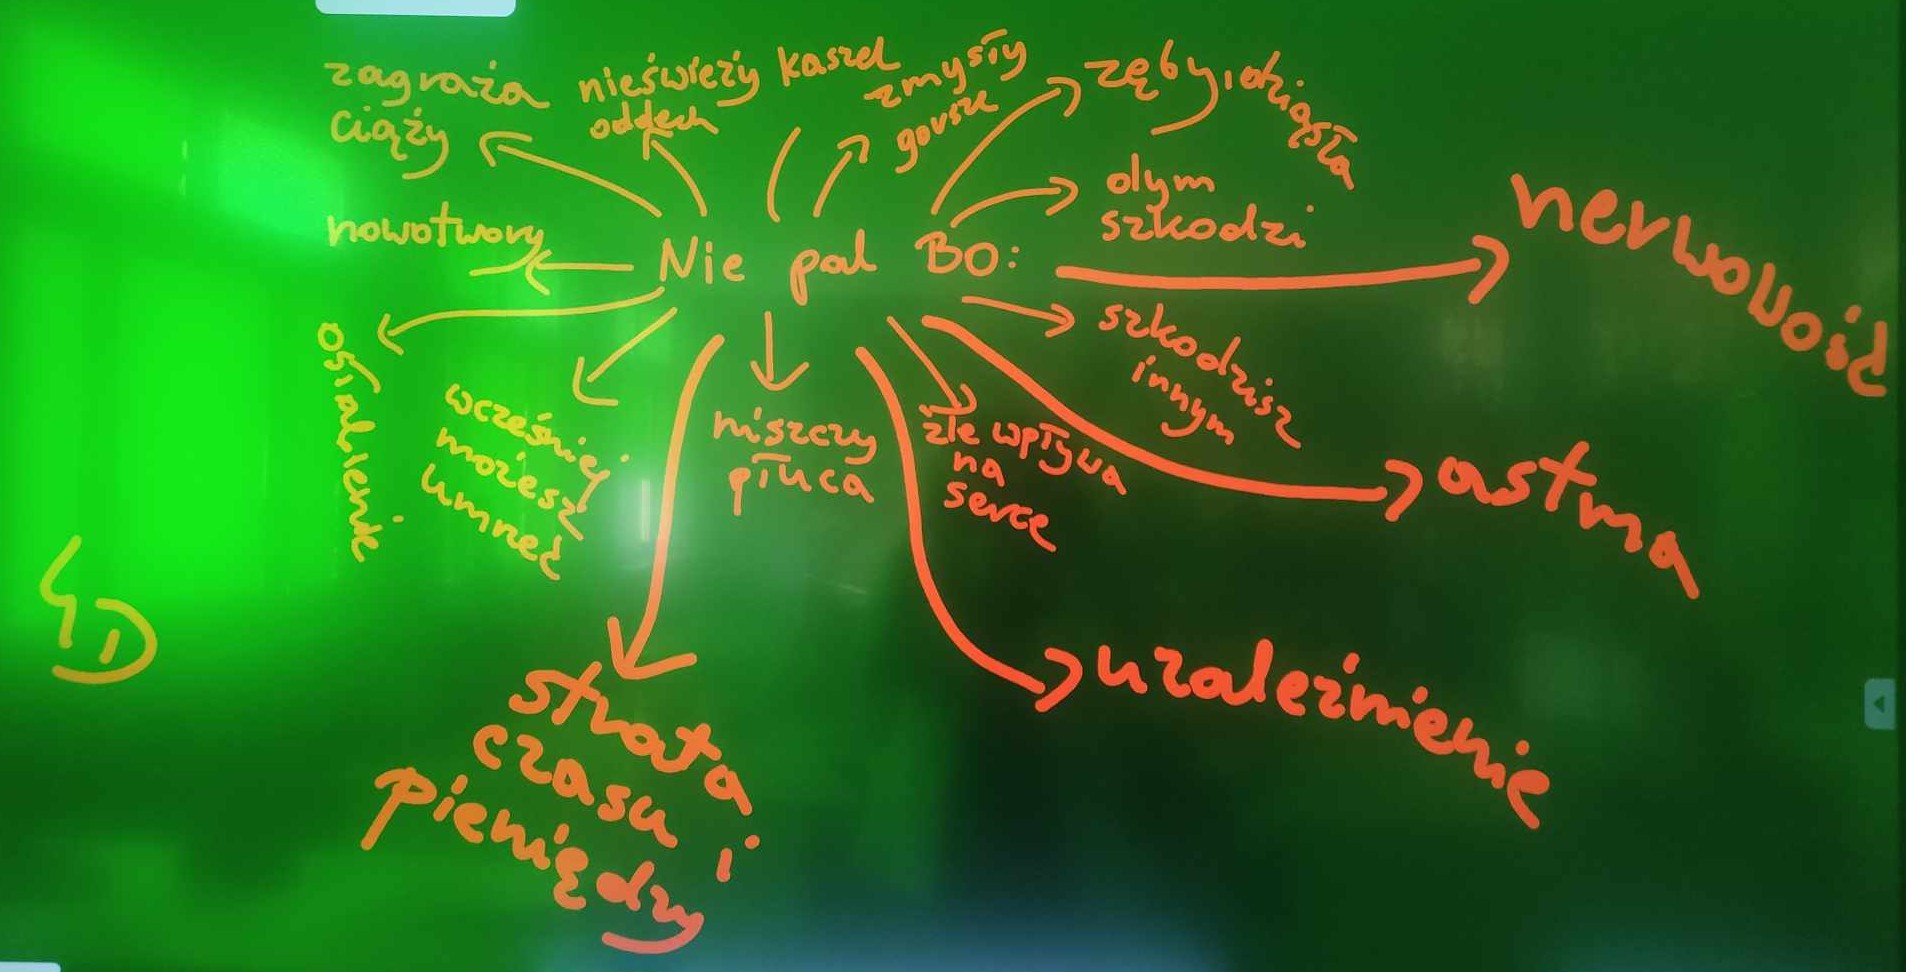 zagraża
ciąży
nieświeży
oddech
kaszel
zmysły
gorsze
zęby, dziąsła
dym
szkodzi
nowotwory
Nie pal BO:
nerwowość
osłabienie
wcześniej
możesz
umrzeć
niszczy
płuca
źle wpływa
na
serce
szkodzisz
innym
astma
4D
strata
czasu i
pieniędzy
uzależnienie